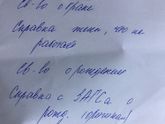 Св-во о браке
Справка жены, что не
работает
Св-во о рождении
Справка с ЗАГСа о
рожд. (оригинал)